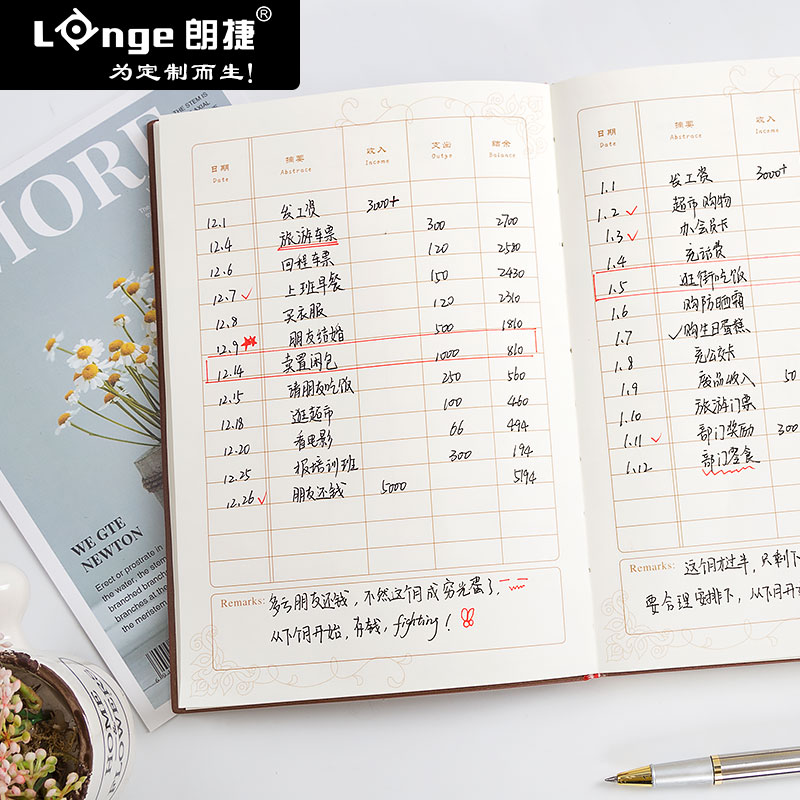 Lange 朗捷®
为定制而生!
MORE
THE STEM IS
AXIAL
WE GTE
NEWTON
Erect or prostrate in
the water, the stem
branched
branches at the
meristem
HOME
FLOWER
日期 摘要 收入 支出 结余
Date Abstrace Income Outpo Balance
12.1 发工资 3000+
12.4 旅游车票 300 2700
12.6 回程车票 120 2580
12.7 ✓ 上班早餐 150 2430
12.8 买衣服 120 2310
12.9 朋友结婚 500 1810
12.14 卖置闲包 1000 810
12.15 请朋友吃饭 250 560
12.18 逛超市 100 460
12.20 看电影 66 494
12.25 报培训班 300 194
12.26 ✓ 朋友还钱 5000 5194
Remarks: 多亏朋友还钱,不然这个月成穷光蛋了,
从下个月开始,存钱,fighting!
日期 摘要 收入
Date Abstrace Income
1.1 发工资 3000+
1.2 ✓ 超市购物
1.3 ✓ 办会员卡
1.4 充话费
1.5 逛街吃饭
1.6 购防晒霜
1.7 ✓购生日蛋糕
1.8 充公交卡
1.9 废品收入 50
1.10 旅游门票
1.11 ✓ 部门奖励 300
1.12 部门零食
Remarks: 这个月才过半,只剩下
要合理安排下,从下月开